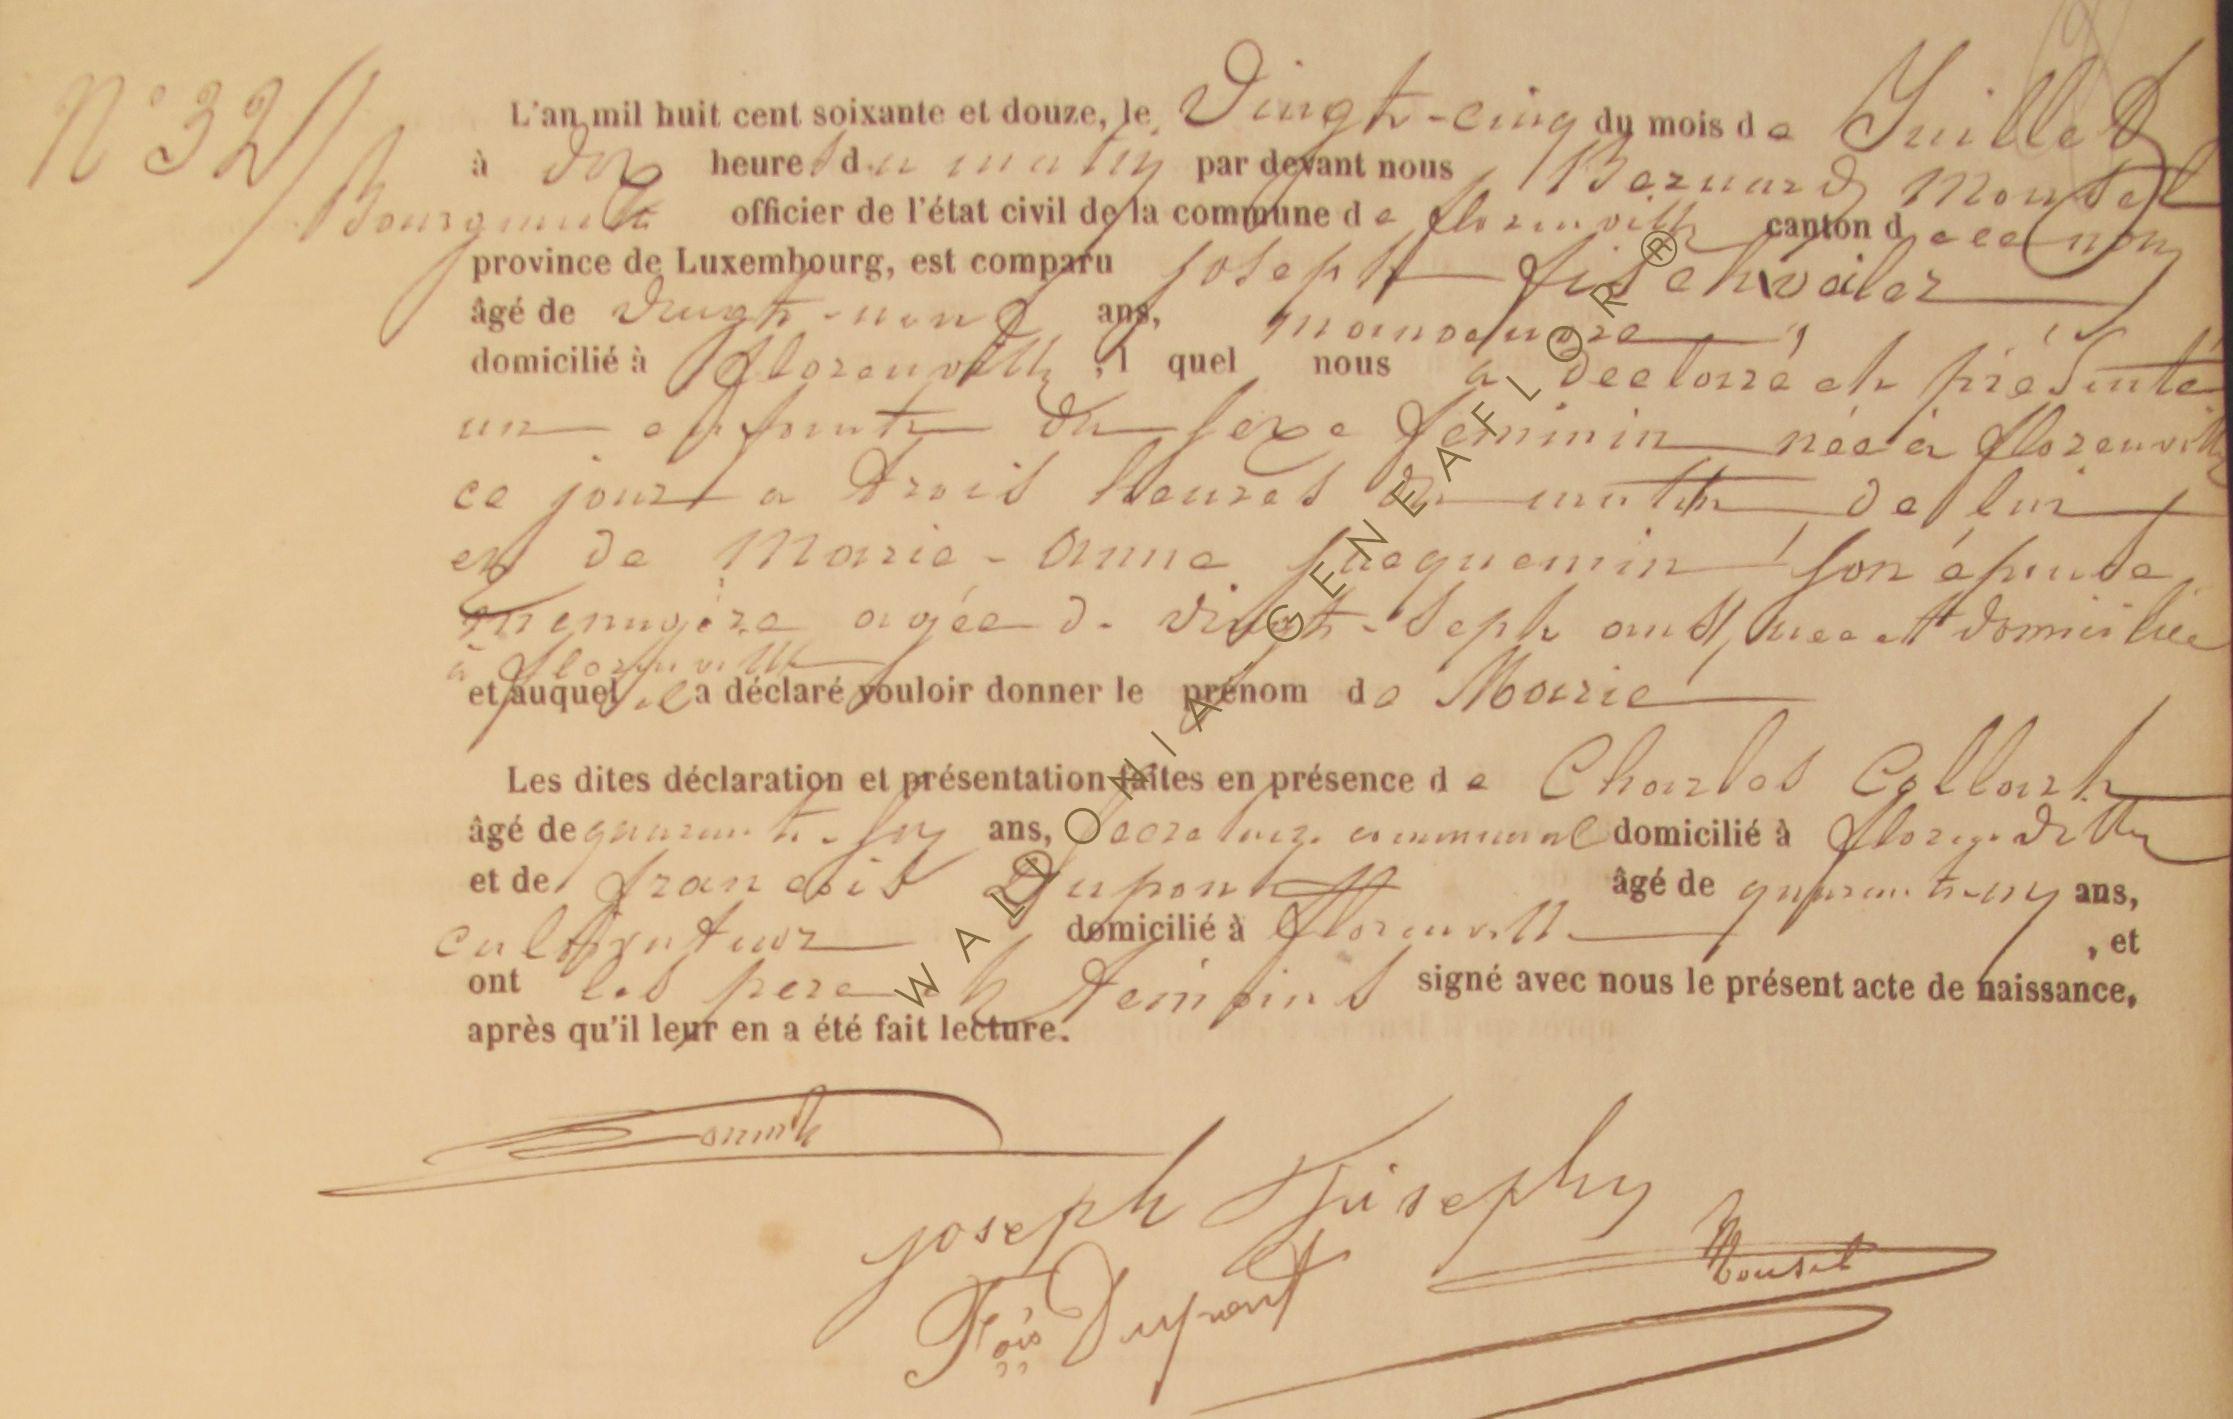 N° 32/
L'an mil huit cent soixante et douze, le Vingt-cinq du mois de Juillet
à dix heures du matin par devant nous Bernard Mousel
Bourgmestre officier de l'état civil de la commune de florenville canton d
province de Luxembourg, est comparu joseph fischweiler
âgé de Vingt-neuf ans, manoeuvre
domicilié à florenville, l quel nous a declaré et présenté
un enfant du sexe feminin née à florenville
ce jour a trois heures du matin de lui
et de Marie-Anne jacquemin son épouse
menagère agée de vingt-sept ans, née et domiciliée
à florenville
et auquel il a déclaré vouloir donner le prénom de Marie
Les dites déclaration et présentation faites en présence de Charles Collart
âgé de quarante-six ans, secretaire communal domicilié à florenville
et de françois Dupont âgé de quarante-un ans,
cultivateur domicilié à florenville, et
ont les pere et temoins signé avec nous le présent acte de naissance,
après qu'il leur en a été fait lecture.
joseph
Fçois Dupont Mousel
WALLONIA-GENEAFLOR®